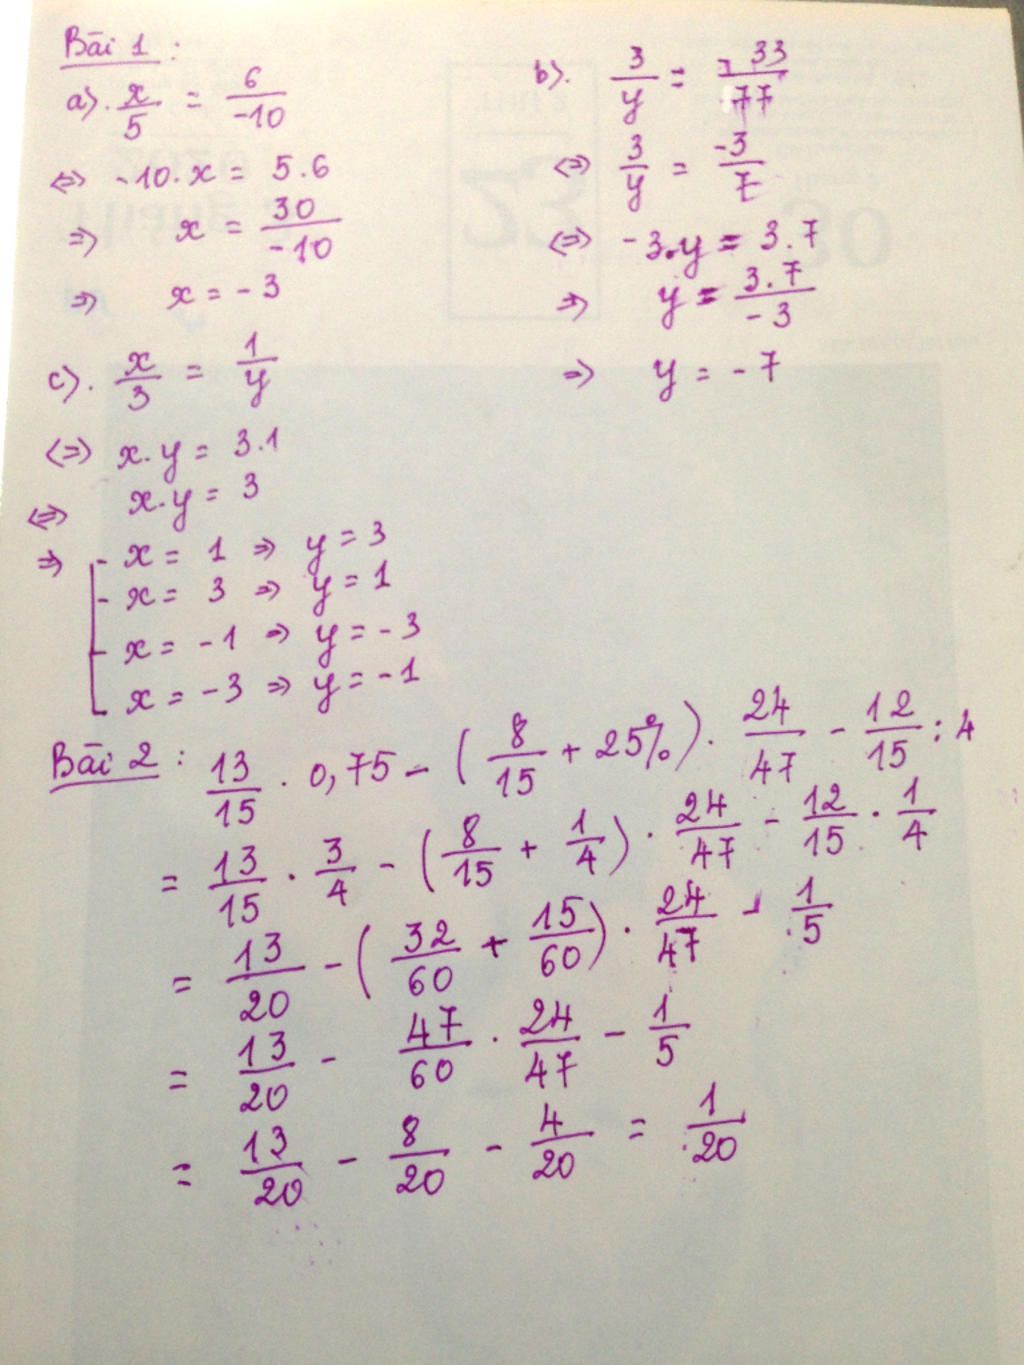 Bài 1 :
a). x/5 = 6/-10
<=> -10.x = 5.6
=> x = 30/-10
=> x = -3
b). 3/y = -33/77
<=> 3/y = -3/7
<=> -3.y = 3.7
=> y = 3.7/-3
=> y = -7
c). x/3 = 1/y
<=> x.y = 3.1
<=> x.y = 3
=> [ - x = 1 => y = 3
- x = 3 => y = 1
- x = -1 => y = -3
x = -3 => y = -1
Bài 2 : 13/15 . 0,75 - (8/15 + 25%) . 24/47 - 12/15 : 4
= 13/15 . 3/4 - (8/15 + 1/4) . 24/47 - 12/15 . 1/4
= 13/20 - (32/60 + 15/60) . 24/47 - 1/5
= 13/20 - 47/60 . 24/47 - 1/5
= 13/20 - 8/20 - 4/20 = 1/20